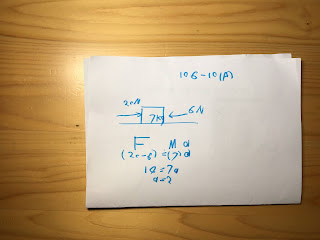 106-10(A)
20N 7kg 6N
F M a
(20-6) =(7)a
14=7a
a=2